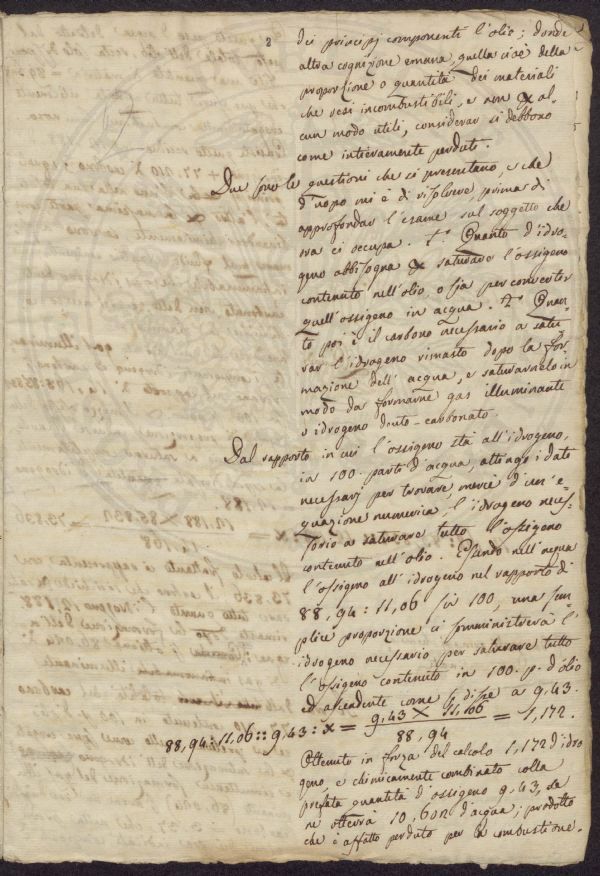 2
dei principj componenti l'olio; donde
altra cognizione emana, quella cioè della
proporzione o quantità dei materiali
che resi incombustibili, e non per al-
cun modo utili, considerar si debbono
come intieramente perduti.
Due sono le questioni che ci presentano, e che
d'uopo mi è di risolvere, prima di
approfondar l'esame sul soggetto che
ora ci occupa. 1.° Quanto d'idro-
geno abbisogna per saturare l'ossigeno
contenuto nell'olio, o sia per convertir
quell'ossigeno in acqua. 2.° Quan-
to poi è il carbono necessario a satu-
rar l'idrogeno rimasto dopo la for-
mazione dell'acqua, e saturarnelo in
modo da formarne gas illuminante
o idrogeno deuto-carbonato.
Dal rapporto in cui l'ossigeno stà all'idrogeno,
in 100. parti d'acqua, attingo i dati
necessarj per trovare mercè d'un'e-
quazione numerica, l'idrogeno neces-
sario a saturare tutto l'ossigeno
contenuto nell'olio. Essendo nell'acqua
l'ossigeno all'idrogeno nel rapporto di
88,94 : 11,06 in 100, una sem-
plice proporzione ci somministrerà l'
idrogeno necessario per saturare tutto
l'ossigeno contenuto in 100. p. d'olio
ed ascendente come si disse a 9,43.
88,94 : 11,06 :: 9,43 : x = 9,43 × 11,06 / 88,94 = 1,172.
Ottenuto in forza del calcolo 1,172 d'idro
geno, e chimicamente combinato colla
prefata quantità d'ossigeno 9,43, se
ne otterrà 10,602 d'acqua; prodotto
che è affatto perduto per la combustione.